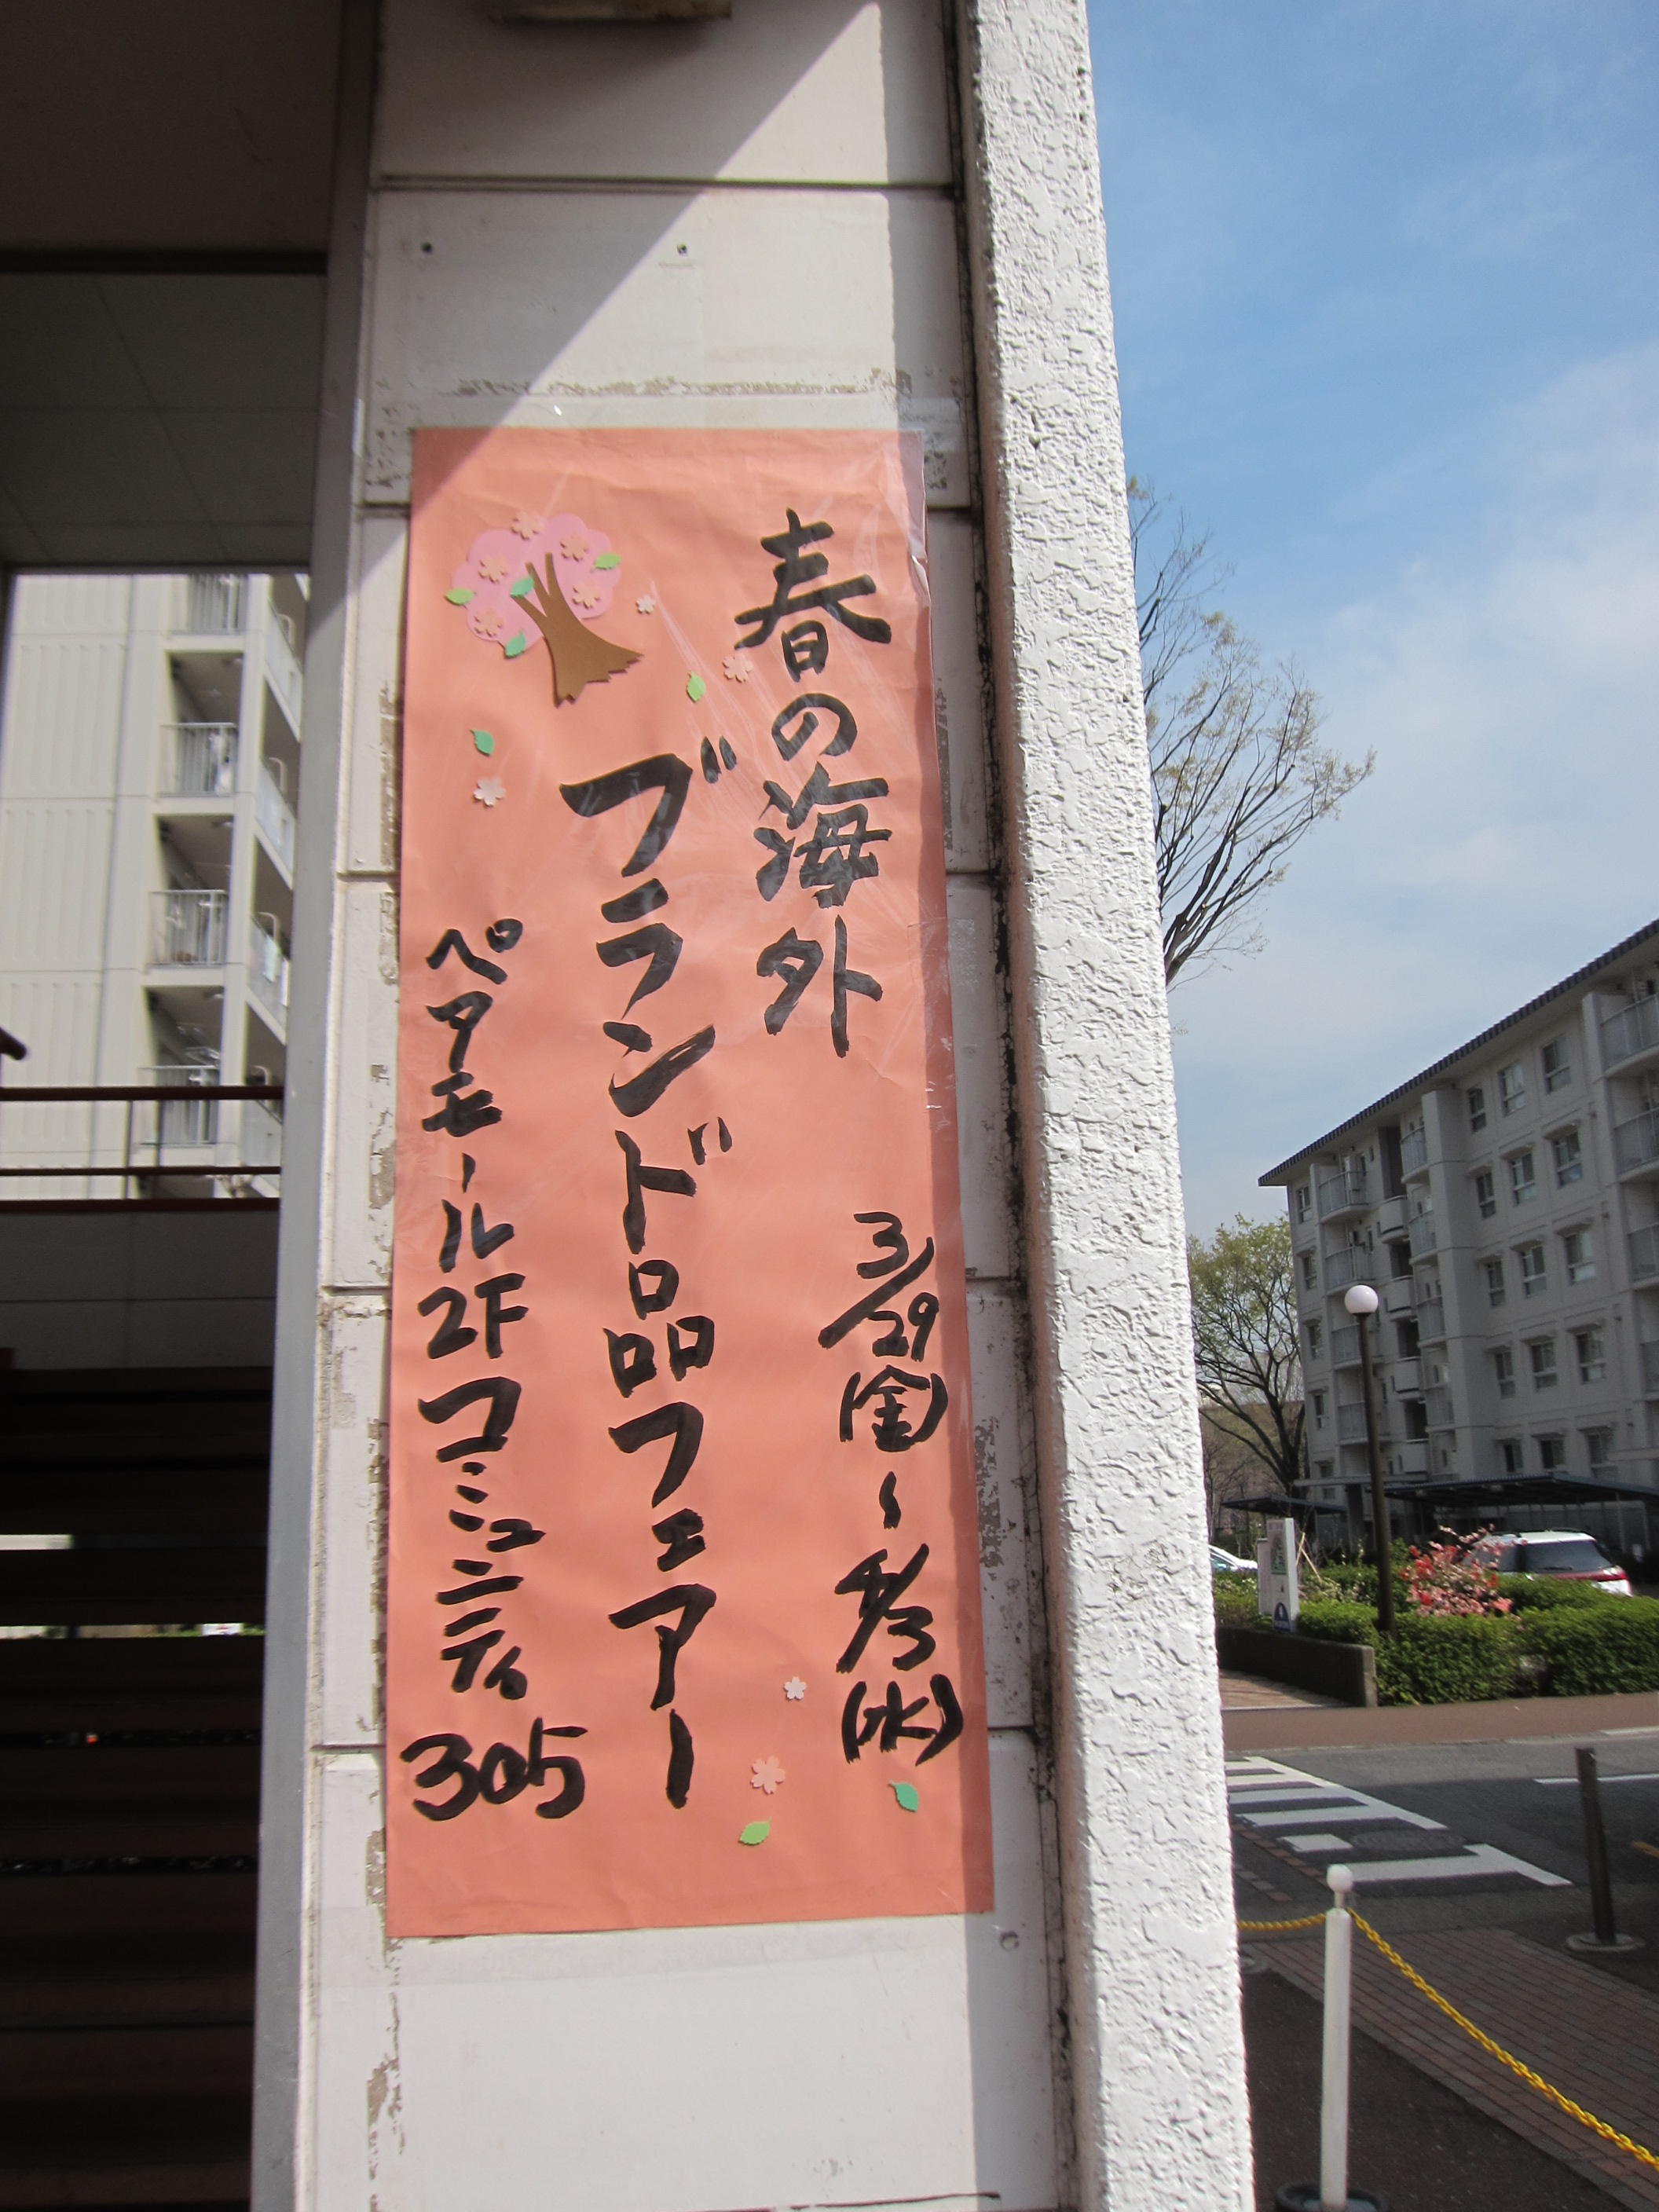 春の海外
3/29(金)～4/3(水)
ブランド品フェアー
ペアモール2Fコミュニティ305